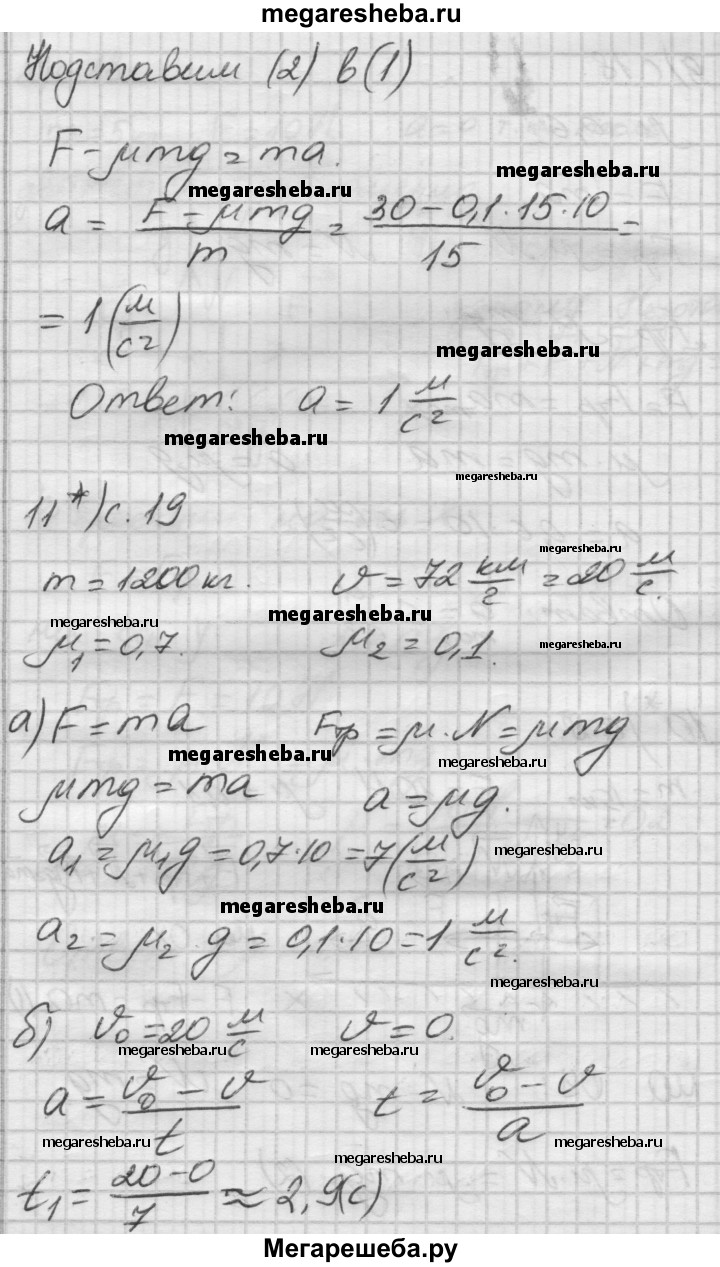 megaresheba.ru
Подставим (2) в (1)
F - μmg = ma.
megaresheba.ru
megaresheba.ru
a = (F - μmg)/m = (30 - 0,1·15·10)/15 =
= 1 (м/с²)
megaresheba.ru
Ответ: a = 1 м/с²
megaresheba.ru
megaresheba.ru
11*) с. 19
megaresheba.ru
m = 1200 кг. v = 72 км/г = 20 м/с.
megaresheba.ru
megaresheba.ru
μ₁ = 0,7. μ₂ = 0,1.
megaresheba.ru
а) F = ma Fтр = μ·N = μmg
megaresheba.ru
megaresheba.ru
μmg = ma a = μg.
a₁ = μ₁g = 0,7·10 = 7 (м/с²)
megaresheba.ru
megaresheba.ru
a₂ = μ₂·g = 0,1·10 = 1 м/с².
megaresheba.ru
б) v₀ = 20 м/с v = 0.
megaresheba.ru
megaresheba.ru
a = (v₀ - v)/t t = (v₀ - v)/a
megaresheba.ru
megaresheba.ru
megaresheba.ru
t₁ = (20 - 0)/7 ≈ 2,9(с)
Мегарешеба.ру